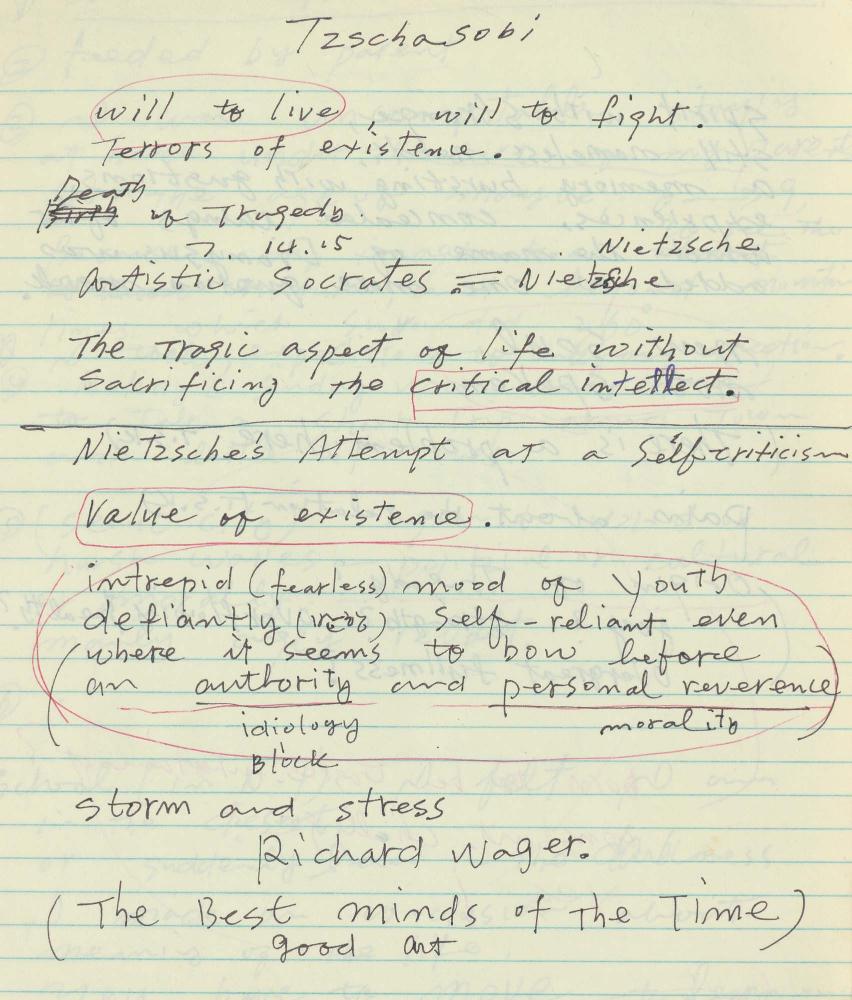 Tzschasobi
will to live, will to fight.
Terrors of existence.
Death
of Tragedy.
7. 14.15
Nietzsche
Artistic Socrates = Nietzsche
The Tragic aspect of life without
Sacrificing the critical intellect.
Nietzsche's Attempt at a Self-criticism
Value of existence.
intrepid (fearless) mood of youth
defiantly self-reliant even
(where it seems to bow before
an authority and personal reverence)
idiology morality
Block
storm and stress
Richard Wager.
(The Best minds of The Time)
good art